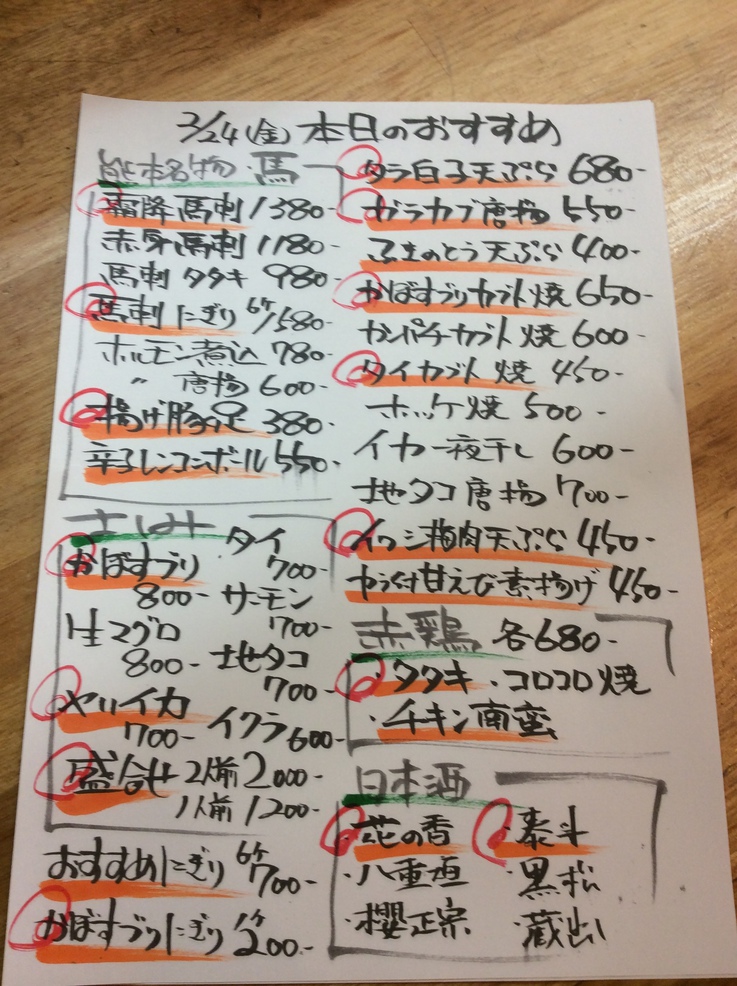 3/24(金)本日のおすすめ
熊本名物・馬
霜降馬刺 1380-
赤身馬刺 1180-
馬刺 タタキ 980-
馬刺にぎり 6ケ/580-
ホルモン煮込 780-
〃 唐揚 600-
揚げ豚足 380-
辛子レンコンボール 550-
さしみ
かぼすブリ
800-
生マグロ
800-
ヤリイカ
700-
タイ
700-
サーモン
700-
地タコ
700-
イクラ 600-
盛合せ 2人前 2000-
1人前 1200-
おすすめにぎり 6ケ 700-
かぼすブリにぎり 1ケ 200-
タラ白子天ぷら 680-
ガラカブ唐揚 550-
ふきのとう天ぷら 400-
かぼすブリカブト焼 650-
カンパチカブト焼 600-
タイカブト焼 450-
ホッケ焼 500-
イカ一夜干し 600-
地タコ唐揚 700-
イワシ梅肉天ぷら 450-
カラ付甘えび素揚げ 450-
赤鶏 各680-
・タタキ・コロコロ焼
・チキン南蛮
日本酒
・花の香
・八重垣
・櫻正宗
・泰斗
・黒松
・蔵出し